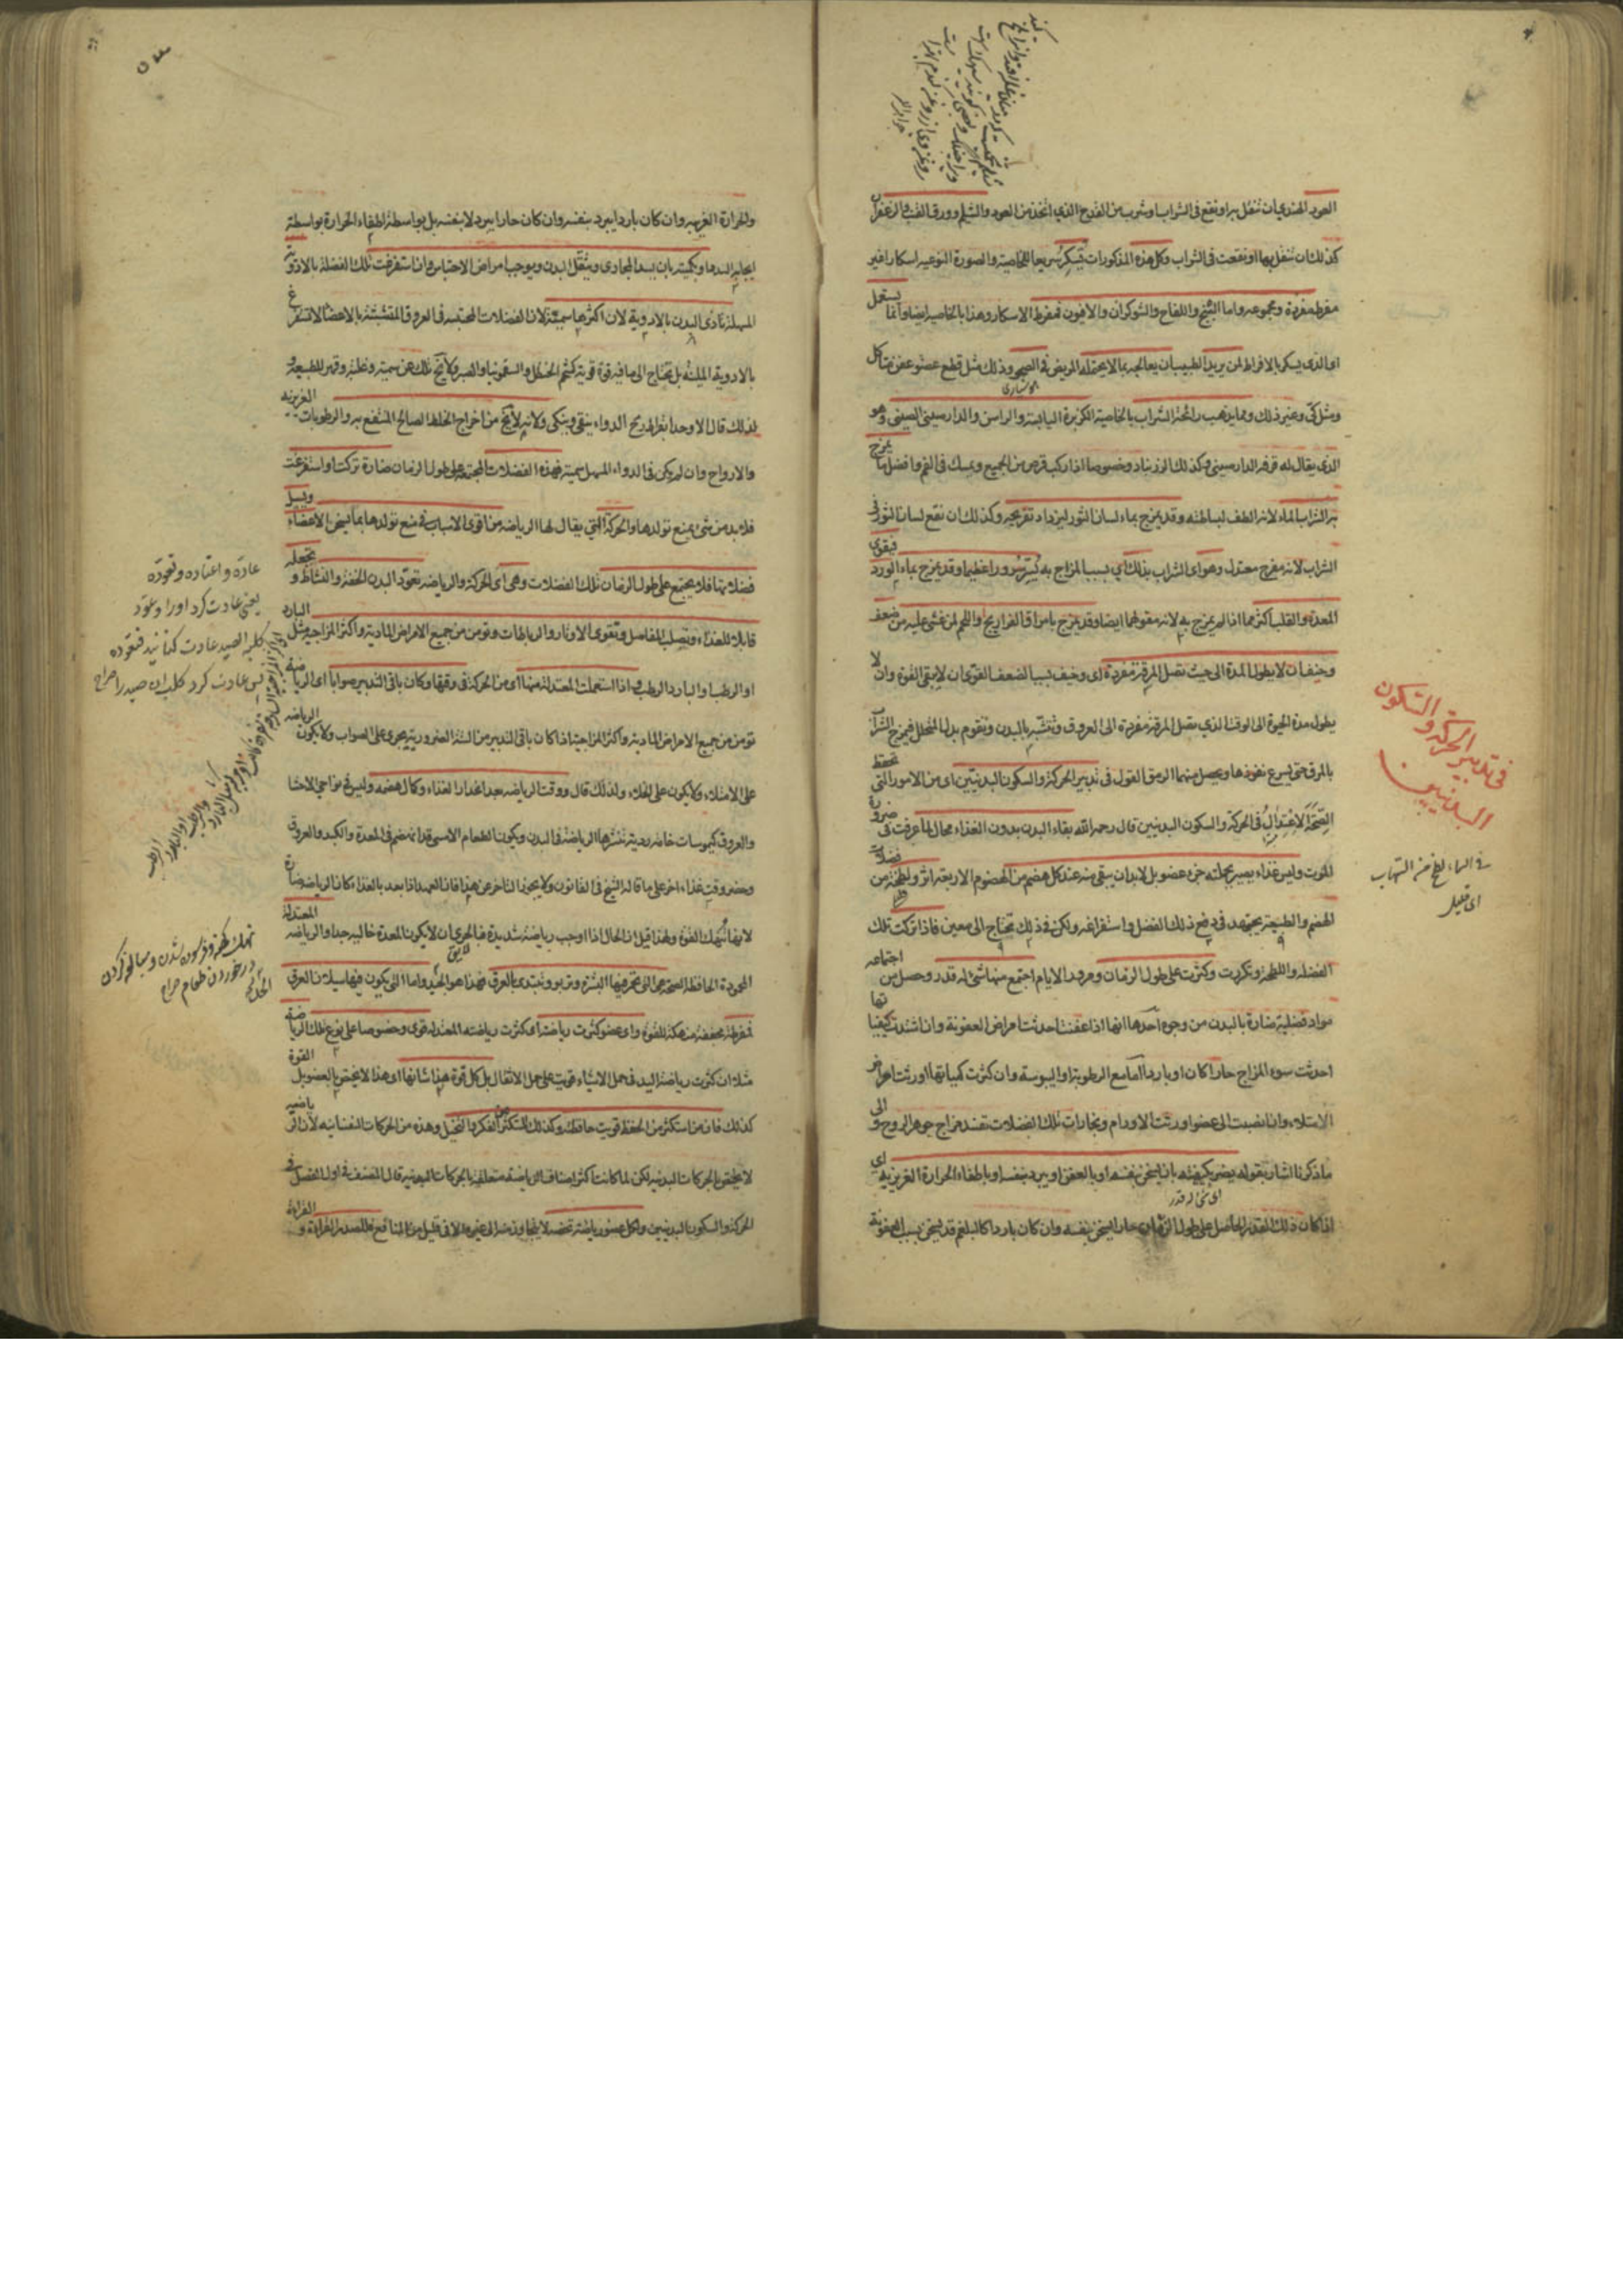 العود الهندي بان تنقل به او نقع في الشراب او شرب من القدح الذي اتخذ من العود والشيلم وورق القنب والزعفران
كذلك ان تنقل بها او نقعت في الشراب وكل هذه المذكورات تسكر سريعا للخاصية والصورة النوعيه اسكارا غير
مفرط مفردة ومجموعه واما البنج واللفاح والشوكران والافيون فمفرط الاسكار وهذا بالخاصيه ايضا وانما يستعمل
اى الذى يسكر بالافراط لمن يريد الطبيب ان يعالجه بما لا يحتمله المريض في الصحو وذلك مثل قطع عضو عفن متاكل
ومثل كى وغير ذلك ومما يذهب رائحة الشراب بالخاصية الكزبرة اليابسة والراسن والدارصيني الصيني وهو
الذي يقال له قرفه الدارصيني وكذلك الزرنباد وخصوصا اذا ركب قرص من الجميع ويمسك في الفم وافضل ما يمزج
به الشراب الماء لانه الطف لبساطته وقد يمزج بماء لسان الثور ليزداد تفريحه وكذلك ان نقع لسان الثور في
الشراب لانه مفرح معتدل وهو اى الشراب بذلك اي بسبب المزاج به يسر سرورا عظيما وقد يمزج بماء الورد فيقوى
المعدة والقلب اكثر مما اذا لم يمزج به لانه مقو لهما ايضا وقد يمزج بامراق الفراريج واللحم لمن غشى عليه من ضعف
وخيف ان لا يطول المدة الى حيث تصل المرقة مفردة اى وخيف بسبب الضعف القوى ان لا يبقى القوة وان لا
يطول مدة الحيوة الى الوقت الذي يصل المرقة مفردة الى العروق وتتشبه بالبدن وتقوم بدل المتحلل فيمزج الشراب
بالمرق حتى يسرع نفوذها ويحصل منهما الرمق القول في تدبير الحركة والسكون البدنيين اى من الامور التي تحفظ
الصحة الاعتدال في الحركة والسكون البدنيين قال رحمه الله بقاء البدن بدون الغذاء محال لما عرفت في ضرورة
الموت وليس غذاء يصير بجملته جزء عضو بل لا بد ان يبقى منه عند كل هضم من الهضوم الاربعة اثر ولطخة من فضلات
الهضم والطبيعة يجتهد في دفع ذلك الفضل واستفراغه ولكن في ذلك تحتاج الى معين فاذا تركت تلك
الفضلة واللطخة وتكررت وكثرت على طول الزمان ومرور الايام اجتمع منها شئ له قدر وحصل من اجتماعه
مواد فضلية ضارة بالبدن من وجوه احدها انها اذا عفنت احدثت امراض العفونة وان اشتدت كيفياتها
احدثت سوء المزاج حارا كان او باردا اما مع الرطوبة او اليبوسة وان كثرت كمياتها اورثت امراض
الامتلاء وان انصبت الى عضو اورثت الاورام وبخارات تلك الفضلات تفسد مزاج جوهر الروح والى
ما ذكرنا اشار بقوله يضر بكيفيته بان يسخن بنفسه او بالعفن او يبرد بنفسه او باطفاء الحرارة الغريزيه اى
اذا كان ذلك القدر الحاصل على طول الزمان حارا يسخن بنفسه وان كان باردا كالبلغم قد يسخن بسبب العفونة
في تدبير الحركة والسكون
البدنيين
اى قليل
والحرارة الغريبه وان كان باردا يبرد بنفسه وان كان حارا يبرد لا بنفسه بل بواسطة اطفاء الحرارة بواسطة
ايجابه السدد او بكميته بان يسد المجارى ويثقل البدن ويوجب امراض الاحتباس وان استفرغت تلك الفضلة بالادوية
المسهلة تاذى البدن بالادوية لان اكثرها سمية ولان الفضلات المحتبسه في العروق المتشبثة بالاعضاء لا تستفرغ
بالادوية الملينة بل تحتاج الى ما فيه قوة قوية كشحم الحنظل والسقمونيا والصبر ولا يخ تلك عن سمية وغلبة وقهر للطبيعة و
لذلك قال الاوحد ابقراط جميع الدواء ينقى وينكى ولانه لا يخ من اخراج الخلط الصالح المنتفع به والرطوبات الغريزيه
والارواح وان لم يكن في الدواء المسهل سمية فهذه الفضلات المجتمعة على طول الزمان ضارة تركت او استفرغت
فلا بد من شئ يمنع تولدها والحركة التي يقال لها الرياضه من اقوى الاسباب في منع تولدها بما يسخن الاعضاء ويسيل
فضلاتها فلا يجتمع على طول الزمان تلك الفضلات وهى اى الحركة والرياضه تعود البدن الخفة والنشاط و يجعله
قابلا للغذاء ويصلب المفاصل ويقوى الاوتار والرباطات وتومن من جميع الامراض المادية واكثر المزاجيه مثل البارد
او الرطب والبارد الرطب اذا استعملت المعتدلة منها اى من الحركة في وقتها وكان باقى التدبير صوابا اى الرياضة
تومن من جميع الامراض المادية واكثر المزاجية اذا كان باقى التدبير من الستة الضرورية يجرى على الصواب ولا يكون الرياضه
على الامتلاء ولا يكون على الخلاء ولذلك قال ووقت الرياضه بعد انحدار الغذاء وكمال هضمه وليس في نواحي الاحشا
والعروق كيموسات خامه رديه تنشرها الرياضة في البدن ويكون الطعام الامسى قد انهضم في المعدة والكبد والعروق
وحضر وقت غذاء اخر على ما قاله الشيخ في القانون ولا يجوز التاخر عن هذا فان العهد اذا بعد بالغذاء كان الرياضه ضارة
لانها تنهك القوة ولهذا قيل ان الحال اذا اوجب رياضة شديدة فبالحرى ان لا يكون المعدة خاليه جدا والرياضه المعتدلة
المحمودة الحافظة للصحة هى التى تحمر فيها البشرة وتربو وتبتدى بالعرق فهذا هو الجيد واما التى يكون فيها سيلان العرق
فمفرطة مجففة منهكة للقوة واى عضو كثرت رياضته اى كثرت رياضته المعتدله قوى وخصوصا على نوع تلك الرياضة
مثلا ان كثرت رياضة اليد في حمل الاشياء قويت على حمل الاثقال بل كل قوة هذا شانها اى هذا لا يختص بالعضو بل القوة
كذلك فان من استكثر من الحفظ قويت حافظته وكذلك المستكثر من الفكر والتخيل وهذه من الحركات النفسانيه لان
لا يختص بالحركات البدنيه لكن لما كانت اكثر اصناف الرياضة متعلقة بالحركات البدنية قال المصنف في اول الفصل في
الحركة والسكون البدنيين ولكل عضو رياضة تخصه لا يتجاوز منه الى غيره الا في قليل من المنافع فللصدر القراءة و
عادة واعتاده وتعوده
يعنى عادت كرد اورا وعود
كلبه الصيد عادت كنانيد فتعوده
پس عادت كرد كلب ان صيد را صراح
در خوردن طعام صراح